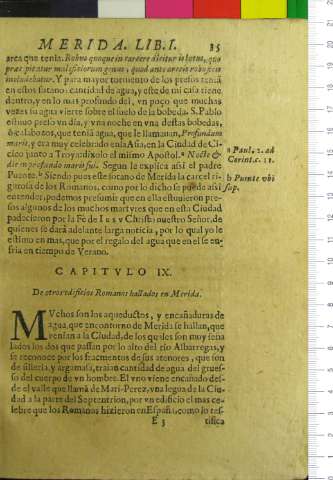 MERIDA. LIB. I. 35
area que tenia. Robus quoque in carcere dicitur is locus, quo
præcipitatur maleficiorum genus, quod ante arcis robusteis
includebatur. Y para mayor tormento de los presos tenia
en estos sotanos cantidad de agua, y este de mi casa tiene
dentro, y en lo mas profundo del, vn poço que muchas
vezes su agua vierte sobre el suelo de la bobeda. S. Pablo
estuuo preso vn dia, y vna noche en vna destas bobedas,
ò calaboços, que tenia agua, que le llamauan, Profundum
maris, y era muy celebrado en la Asia, en la Ciudad de Ci-
cico junto a Troya; dixolo el mismo Apostol. a Nocte &
die in profundo maris fui. Segun le explica assi el padre
Puente. b Siendo pues este sotano de Merida la carcel ri-
gurosa de los Romanos, como por lo dicho se puede assi
entender, podemos presumir que en ella estuuieron pre-
sos algunos de los muchos martyres que en esta Ciudad
padecieron por la Fé de Iesu Christo nuestro Señor, de
quienes se darà adelante larga noticia, por lo qual yo le
estimo en mas, que por el regalo del agua que en el se en-
fria en tiempo de Verano.
a Paul. 2. ad
Corint. c. 11.
b Puente vbi
sup.
CAPITVLO IX.
De otros edificios Romanos hallados en Merida.
MVchos son los aqueductos, y encañaduras de
agua, que en contorno de Merida se hallan, que
venian a la Ciudad, de los quales son muy seña
lados los dos que passan por lo alto del rio Albarregas, y
se reconoce por los fragmentos de sus atenores, que son
de silleria, y argamasa, traian cantidad de agua del grues-
so del cuerpo de vn hombre. El vno viene encañado des-
de el valle que llamã de Mari-Perez, vna legua de la Ciu-
dad a la parte del Septentrion, por vn edificio el mas ce-
lebre que los Romanos hizieron en España, como lo tes-
E 3 tifica